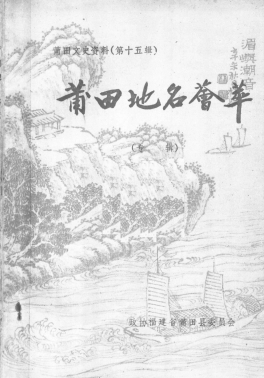 莆田文史资料(第十五辑)
湄屿潮音
莆田地名荟萃
政协福建省莆田县委员会